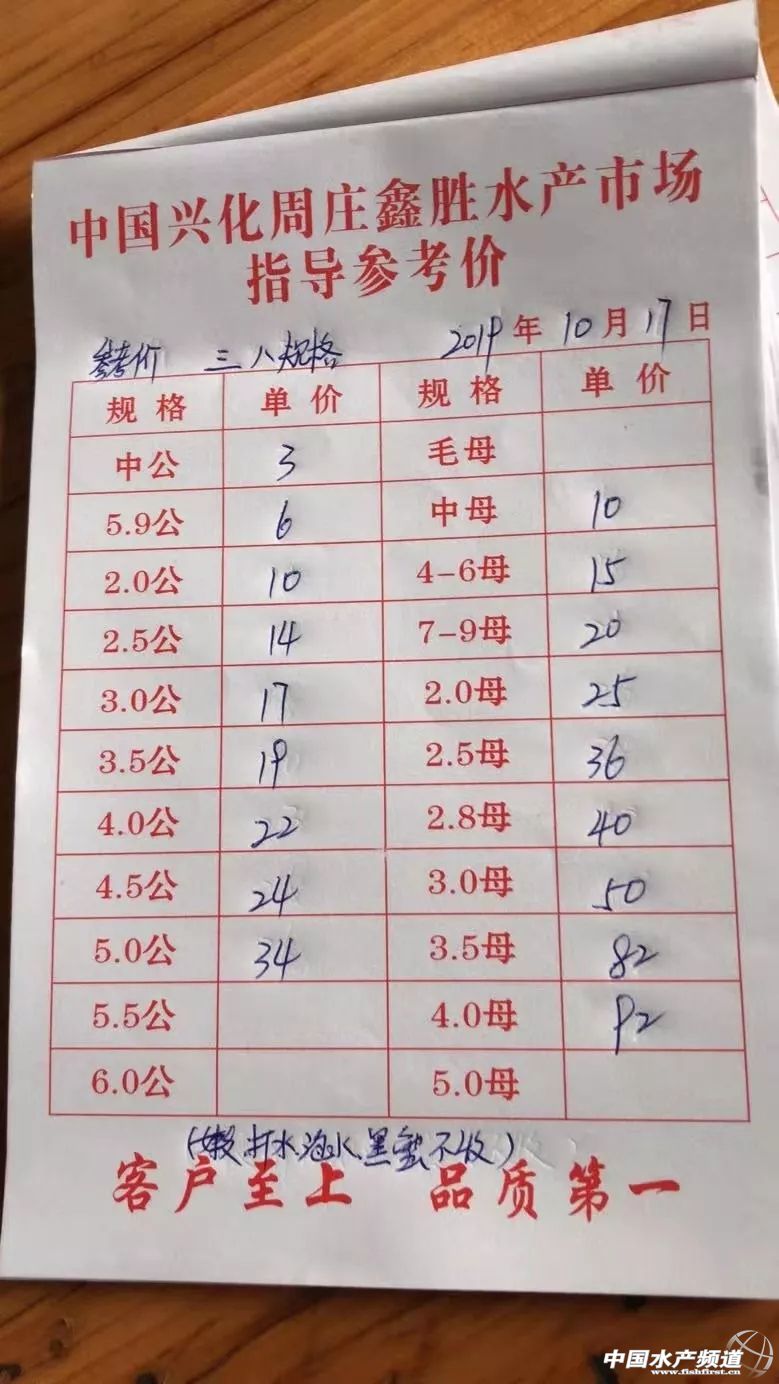 中国兴化周庄鑫胜水产市场
指导参考价
参考价 三八规格 2019年10月17日
规格 单价 规格 单价
中公 3 毛母
5.9公 6 中母 10
2.0公 10 4-6母 15
2.5公 14 7-9母 20
3.0公 17 2.0母 25
3.5公 19 2.5母 36
4.0公 22 2.8母 40
4.5公 24 3.0母 50
5.0公 34 3.5母 82
5.5公 4.0母 92
6.0公 5.0母
(嫩,打水,海水,黑蟹不收)
客户至上 品质第一
中国水产频道
www.fishfirst.cn